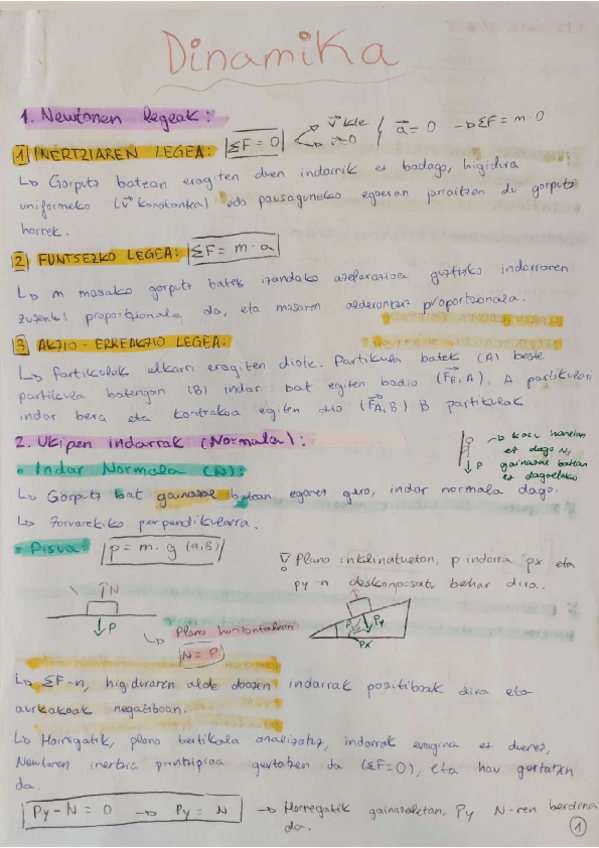 Dinamika
1. Newtonen legeak:
1 INERTZIAREN LEGEA: ΣF = 0 v kte v=0 a = 0 → ΣF = m·0
↳ Gorputz batean eragiten duen indarrik ez badago, higidura
uniformeko (v konstantea) edo pausaguneko egoeran jarraitzen du gorputz
horrek.
2 FUNTSEZKO LEGEA: ΣF = m·a
↳ m masako gorputz batek izandako azelerazioa guztizko indarraren
zuzenki proportzionala da, eta masaren alderantziz proportzionala.
3 AKZIO-ERREAKZIO LEGEA.
↳ Partikulek elkarri eragiten diote. Partikula batek (A) beste
partikula batengan (B) indar bat egiten badio (FB,A), A partikulari
indar bera eta kontrakoa egiten dio (FA,B) B partikulak
2. Ukipen indarrak (Normala):
→ kasu honetan
ez dago N,
gainazal batean
ez dagoelako
P
• Indar Normala (N):
↳ Gorputz bat gainazal batean egonez gero, indar normala dago.
↳ Zoruarekiko perpendikularra.
• Pisua: p = m·g (9,8)
! Plano inklinatuetan, p indarra px eta
py-n deskonposatu behar dira.
N
P
↳ Plano horizontalean
N = P
P Py
Px
↳ ΣF-n, higiduraren alde doazen indarrak positiboak dira eta
aurkakoak negatiboan.
↳ Horregatik, plano bertikala analizatuz, indarrak eragina ez duenez,
Newtonen inertzia printzipioa gertatzen da (ΣF=0), eta hau gertatzen
da.
Py - N = 0 → Py = N → Horregatik gainazaletan, Py N-ren berdina
da.
1